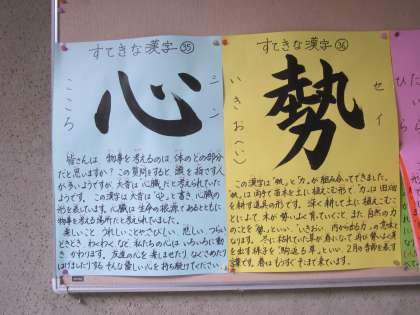 すてきな漢字㉟
こころ
心
シン
皆さんは、物事を考えるのは、体のどの部分
だと思いますか？この質問をすると、頭を指す人
が多いようですが、大昔は「心臓」と考えられていた
ようです。この漢字は大昔は と書き、心臓の
形を表しています。心臓は、生命の根源であるとともに
物事を考える場所だと考えられていました。
楽しいこと、うれしいことやさびしい、悲しい、つらい
ときどき、わくわくなど、私たちの心は、いろいろに動
き、かわります。友達の心を楽しませたり、なぐさめたり
はげましたりする、そんな優しい心を持ち続けてください。
すてきな漢字㊱
いきお(い)
勢
セイ
この漢字は と「力」が組み合ってできました。
は、両手で苗木を土に植えこむ形で、「力」は田畑
を耕す道具の形です。深く耕して土に植えこむこ
とによって、木が勢いよく育っていくこと、また、自然の力
のことを「勢」といい、「いきおい、内から出る力」の意味と
なります。冬に枯れていた草が春になって、再び勢いよく芽
を出す様子を「駒返る草」といい、2月の季節を表す
言葉です。春はもうすぐそこまで来ています。
ひだ